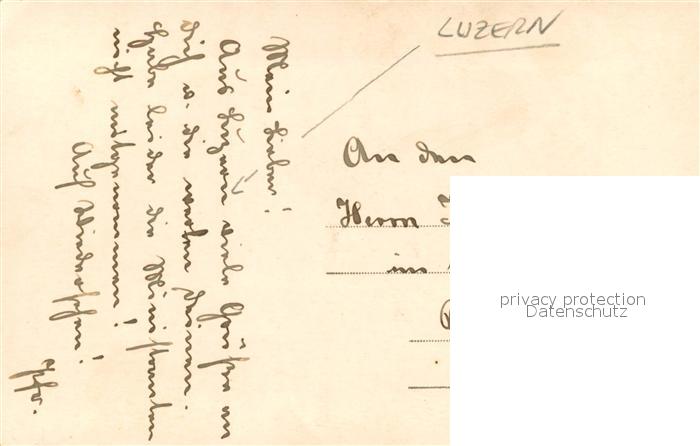 LUZERN
Mein Lieber!
Aus Luzern viele Grüße an
Dich u. die werten Deinen.
Habe leider die Ministranten
nicht mitgenommen!
Auf Wiedersehen!
An den
Herrn
im
privacy protection
Datenschutz